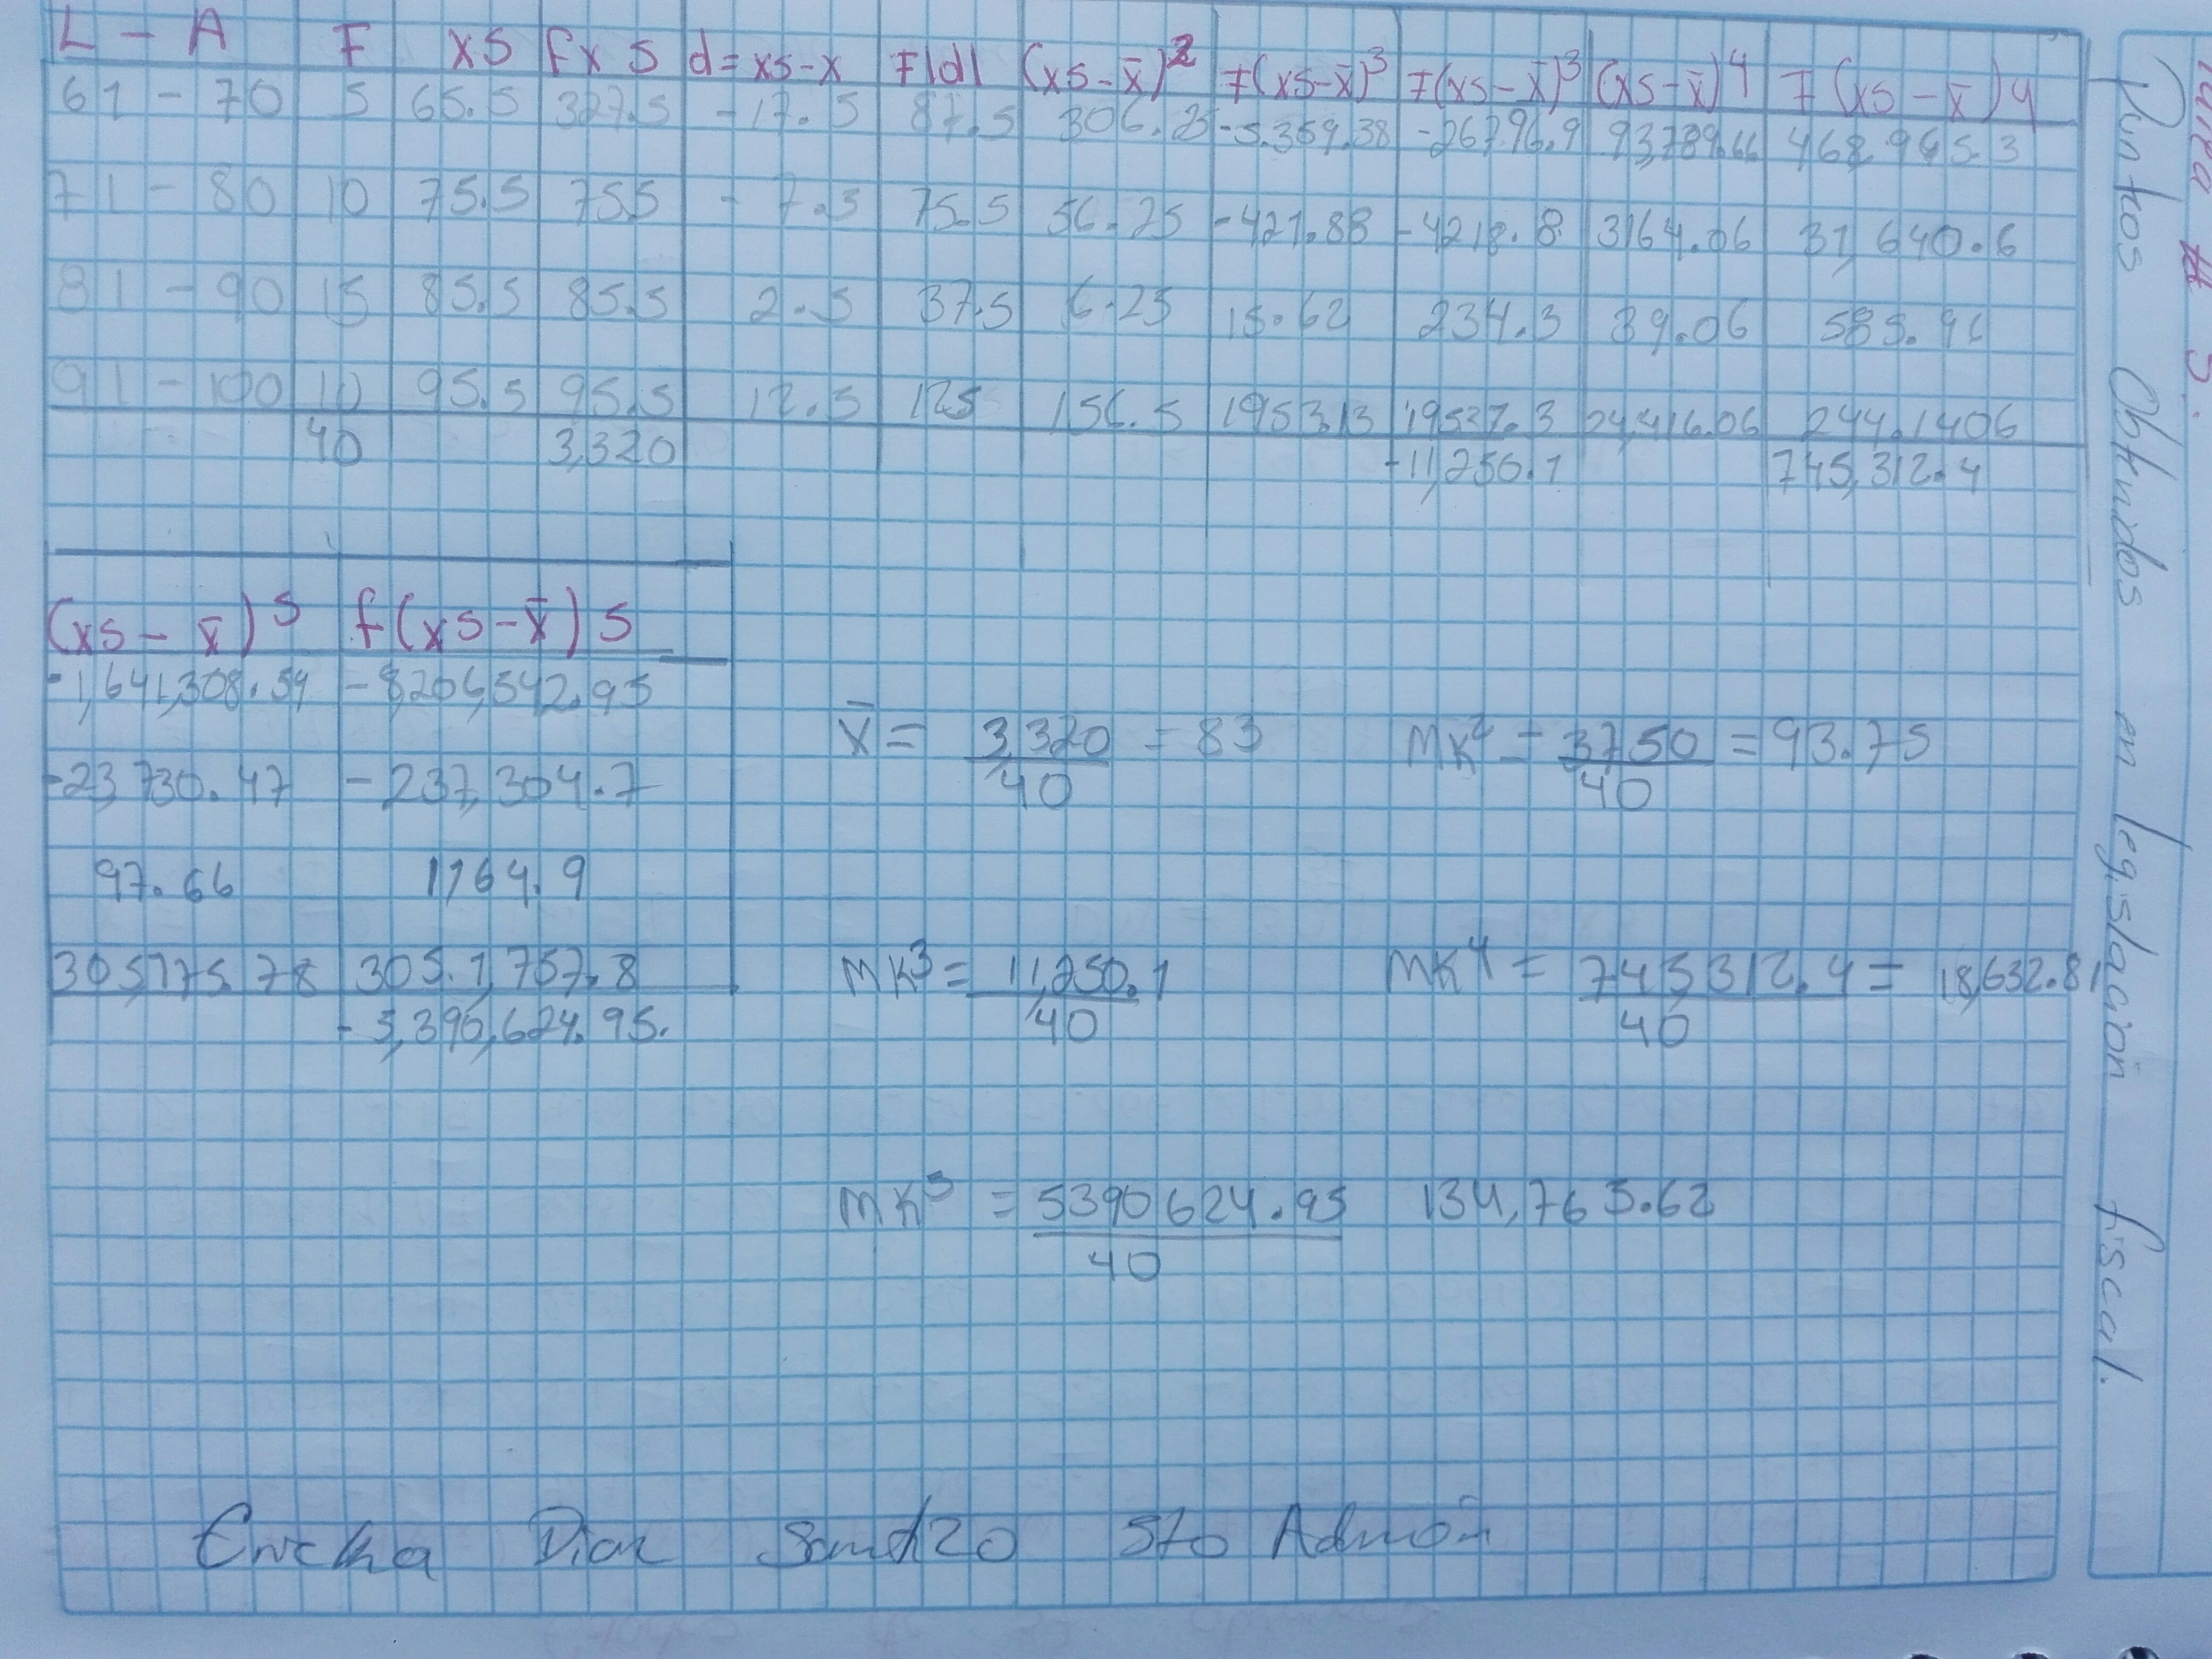 L - A F XS FXS d=xs-x F|d| (xs-x̄)² F(xs-x̄)³ F(xs-x̄)³ (xs-x̄)4 F(xs-x̄)4
61 - 70 5 65.5 327.5 -17.5 87.5 306.25 -5.359.38 -26796.9 93,789.66 468,945.3
71 - 80 10 75.5 755 -7.5 75.5 56.25 -421.88 -4218.8 3164.06 31,640.6
81 - 90 15 85.5 85.5 2.5 37.5 6.25 15.62 234.3 39.06 585.96
91 - 100 10 95.5 95.5 12.5 125 156.5 195313 19537.3 24,416.06 244.1406
40 3,320 -11,250.1 745,312.4
(xs - x̄)5 f(xs-x̄)5
-1,641,308.59 -8,206,542.95
-23,730.47 -237,304.7
97.66 1164.9
305,175.78 305.1,757.8
-5,390,624.95.
x̄ = 3,320 = 83
40
MK² = 3750 = 93.75
40
MK³ = 11,250.1
40
MK4 = 745,312.4 = 18,632.81
40
MK5 = 5390624.95 134,765.62
40
Diaz 5to Admón
Tarea # 5.
Puntos Obtenidos en legislación fiscal.